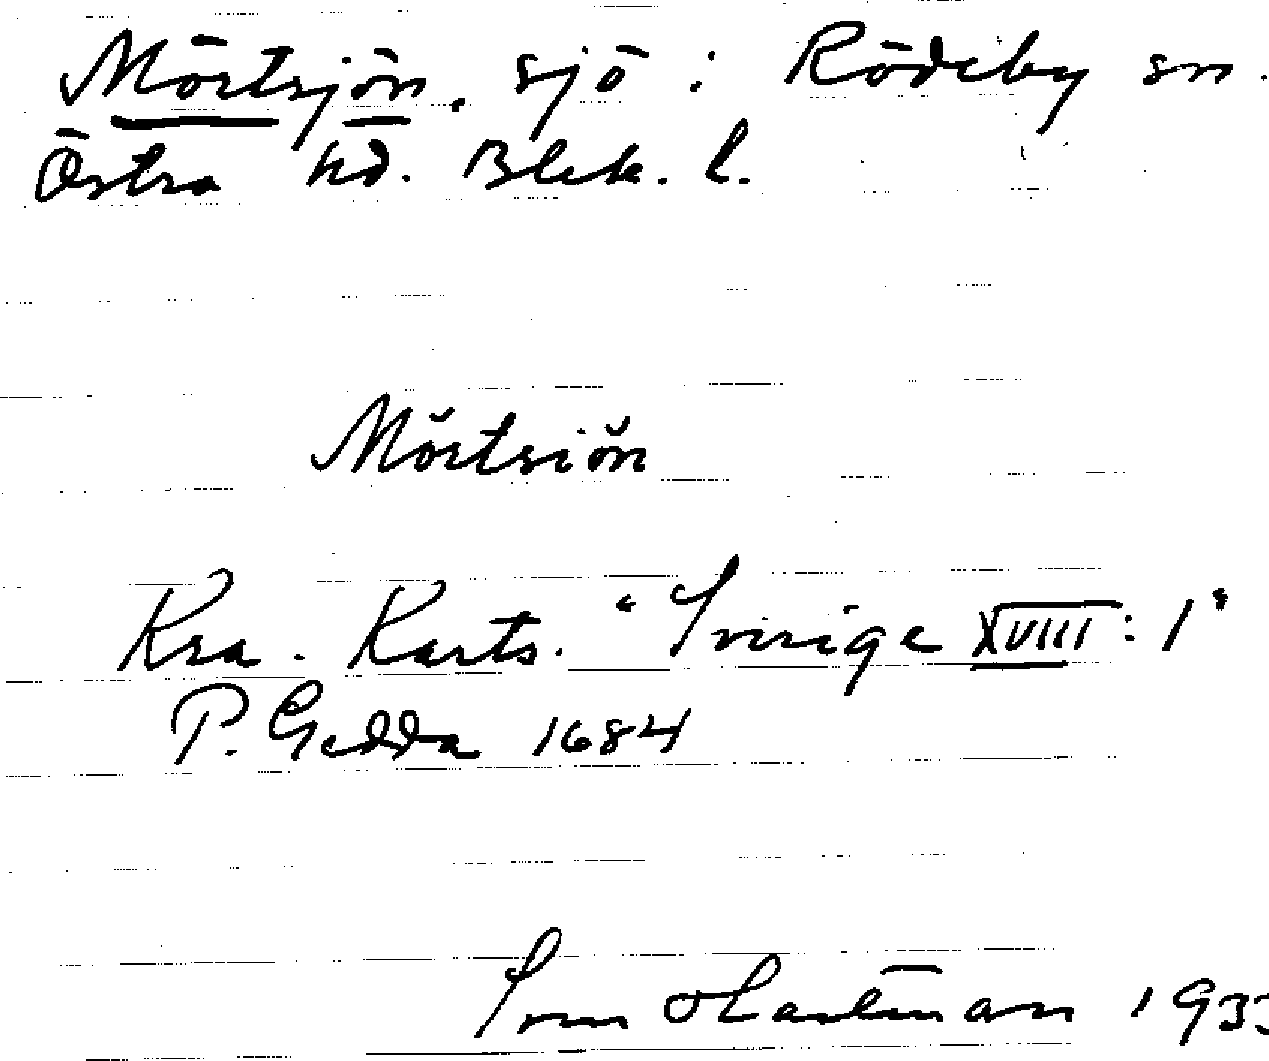 Mörtsjön, sjö i Rödeby sn.
Östra hd. Blek. l.
Mörtsiön
Kra. Karts. "Sverige XVIII:1"
P. Gedda 1684
Sven Hartman 1933